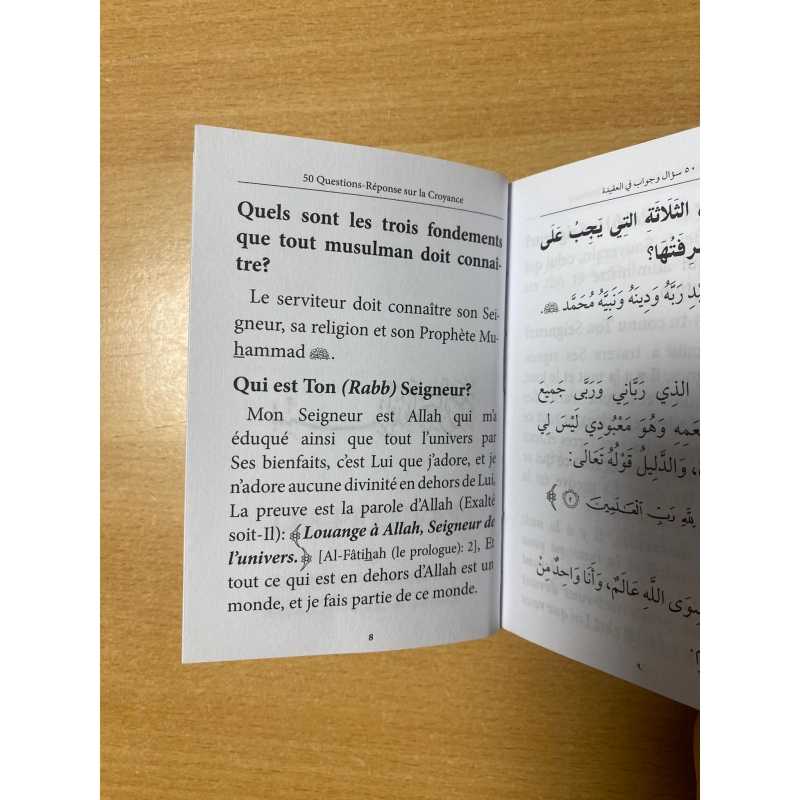 50 Questions-Réponse sur la Croyance
Quels sont les trois fondements
que tout musulman doit connaî-
tre?
Le serviteur doit connaître son Sei-
gneur, sa religion et son Prophète Mu-
hammad ﷺ.
Qui est Ton (Rabb) Seigneur?
Mon Seigneur est Allah qui m'a
éduqué ainsi que tout l'univers par
Ses bienfaits, c'est Lui que j'adore, et je
n'adore aucune divinité en dehors de Lui.
La preuve est la parole d'Allah (Exalté
soit-Il): ﴾Louange à Allah, Seigneur de
l'univers.﴿ [Al-Fâtihah (le prologue): 2], Et
tout ce qui est en dehors d'Allah est un
monde, et je fais partie de ce monde.
8
٥٠ سؤال وجواب في العقيدة
الثَلَاثَةِ التِي يَجِبُ عَلَى
رَبَّهُ وَدِينَهُ وَنَبِيَّهُ مُحَمَّد ﷺ.
الذِي رَبَّانِي وَرَبَّى جَمِيعَ
وَهُوَ مَعْبُودِي لَيْسَ لِي
وَالدَّلِيلُ قَوْلُهُ تَعَالَى:
لِلَّهِ رَبِّ الْعَالَمِينَ ٢ ﴾
سِوَى اللَّهِ عَالَمٌ، وَأَنَا وَاحِدٌ مِنْ
٩